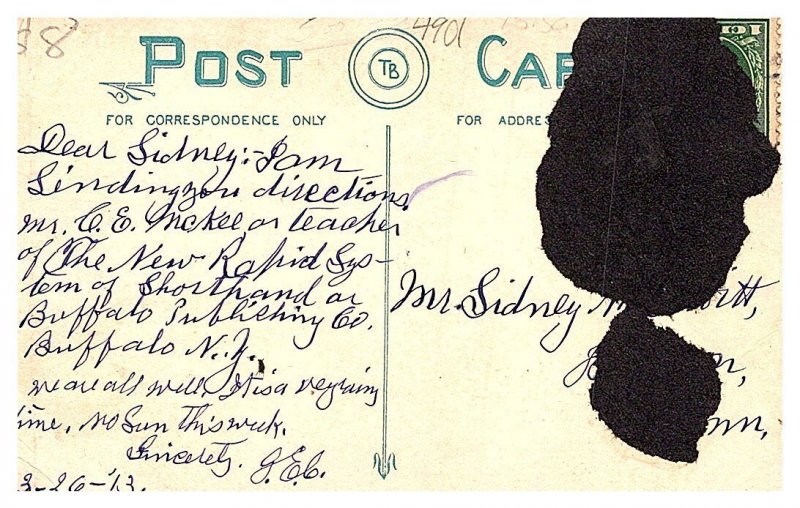 4901
POST CAR
TB
FOR CORRESPONDENCE ONLY
FOR ADDRES
Dear Sidney:- I am
Sending you directions.
Mr. C. E. McKee or teacher
of The New Rapid Sys-
tem of Shorthand or
Buffalo Publishing Co.
Buffalo N.Y.
we are all well. It is a rainy
time, no Sun this week.
Sincerely.
J.E.C.
3-26-'13.
Mr. Sidney
itt,
n,
nn,